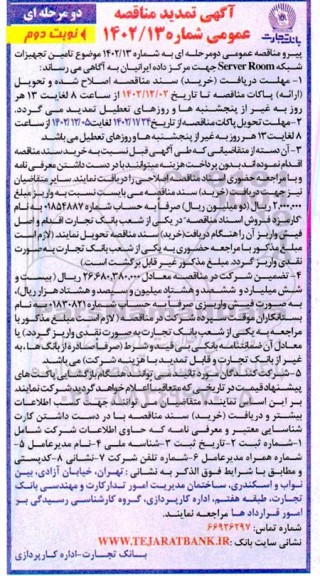 آگهی تمدید مناقصه
عمومی شماره ۱۴۰۲/۱۳
دو مرحله ای
نوبت دوم
بانک تجارت
پیرو مناقصه عمومی دومرحله ای به شماره ۱۴۰۲/۱۳ موضوع تامین تجهیزات
شبکه Server Room جهت مرکز داده ایرانیان به آگاهی می رساند:
۱- مهلت دریافت (خرید) سند مناقصه اصلاح شده و تحویل
(ارائه) پاکات مناقصه تا تاریخ ۱۴۰۲/۱۲/۰۲ از ساعت ۸ لغایت ۱۳ هر
روز به غیر از پنجشنبه ها و روزهای تعطیل تمدید می گردد.
۲- مهلت تحویل پاکات مناقصه از تاریخ ۱۴۰۲/۱۱/۲۴ لغایت ۱۴۰۲/۱۲/۰۵ از ساعت
۸ لغایت ۱۳ هر روز به غیر از پنجشنبه ها و روزهای تعطیل می باشد.
۳- آن دسته از متقاضیانی که طی آگهی قبل نسبت به خرید سند مناقصه
اقدام نموده اند بدون پرداخت هزینه میتوانند با در دست داشتن معرفی نامه
و با مراجعه حضوری اسناد مناقصه اصلاحی را دریافت نمایند. سایر متقاضیان
نیز جهت دریافت (خرید) سند مناقصه می بایست نسبت به واریز مبلغ
۲.۰۰۰.۰۰۰ ریال (دو میلیون ریال) صرفاً به حساب شماره ۰۱۸۵۴۸۸۷ به نام
کارمزد فروش اسناد مناقصه در یکی از شعب بانک تجارت اقدام و اصل
فیش واریز آن را هنگام دریافت (خرید) سند مناقصه تحویل نمایند. (لازم است
مبلغ مذکور با مراجعه حضوری به یکی از شعب بانک تجارت به صورت
نقدی واریز گردد. مبلغ مذکور غیر قابل برگشت است)
۴- تضمین شرکت در مناقصه معادل ۲۶.۶۸۰.۳۸۰.۰۰۰ ریال (بیست و
شش میلیارد و ششصد و هشتاد میلیون و سیصد و هشتاد هزار ریال)،
به صورت فیش واریزی صرفاً به حساب شماره ۰۱۸۳۰۸۲۱ به نام
بستانکاران موقت - سپرده شرکت در مناقصه (لازم است مبلغ مذکور با
مراجعه به یکی از شعب بانک تجارت به صورت نقدی واریز گردد) یا
معادل آن ضمانتنامه بانکی بی قید و شرط (صرفاً صادره از بانک ها، به
غیر از بانک تجارت و قابل تمدید با هزینه شرکت) می باشد.
پیشنهاد قیمت در تاریخی که متعاقباً اعلام خواهد گردید شرکت نمایند.
بر این اساس نمایندگان متقاضیان می توانند جهت کسب اطلاعات
بیشتر و دریافت (خرید) سند مناقصه با در دست داشتن کارت
شناسایی معتبر و معرفی نامه که حاوی اطلاعات شرکت شامل
۱- شماره ثبت ۲- تاریخ ثبت ۳- شناسه ملی ۴- نام مدیرعامل ۵-
شماره همراه مدیرعامل ۶- شماره تلفن شرکت ۷- نشانی ۸- کدپستی
و مطابق با شرایط فوق الذکر به نشانی: تهران، خیابان آزادی، بین
نواب و اسکندری، ساختمان مدیریت امور تدارکات و مهندسی بانک
تجارت، طبقه هفتم، اداره کارپردازی، گروه کارشناسی رسیدگی بر
امور قرارداد ها مراجعه نمایند.
شماره تماس: ۶۶۹۲۶۲۹۷
نشانی سایت بانک: WWW.TEJARATBANK.IR
بانک تجارت-اداره کارپردازی